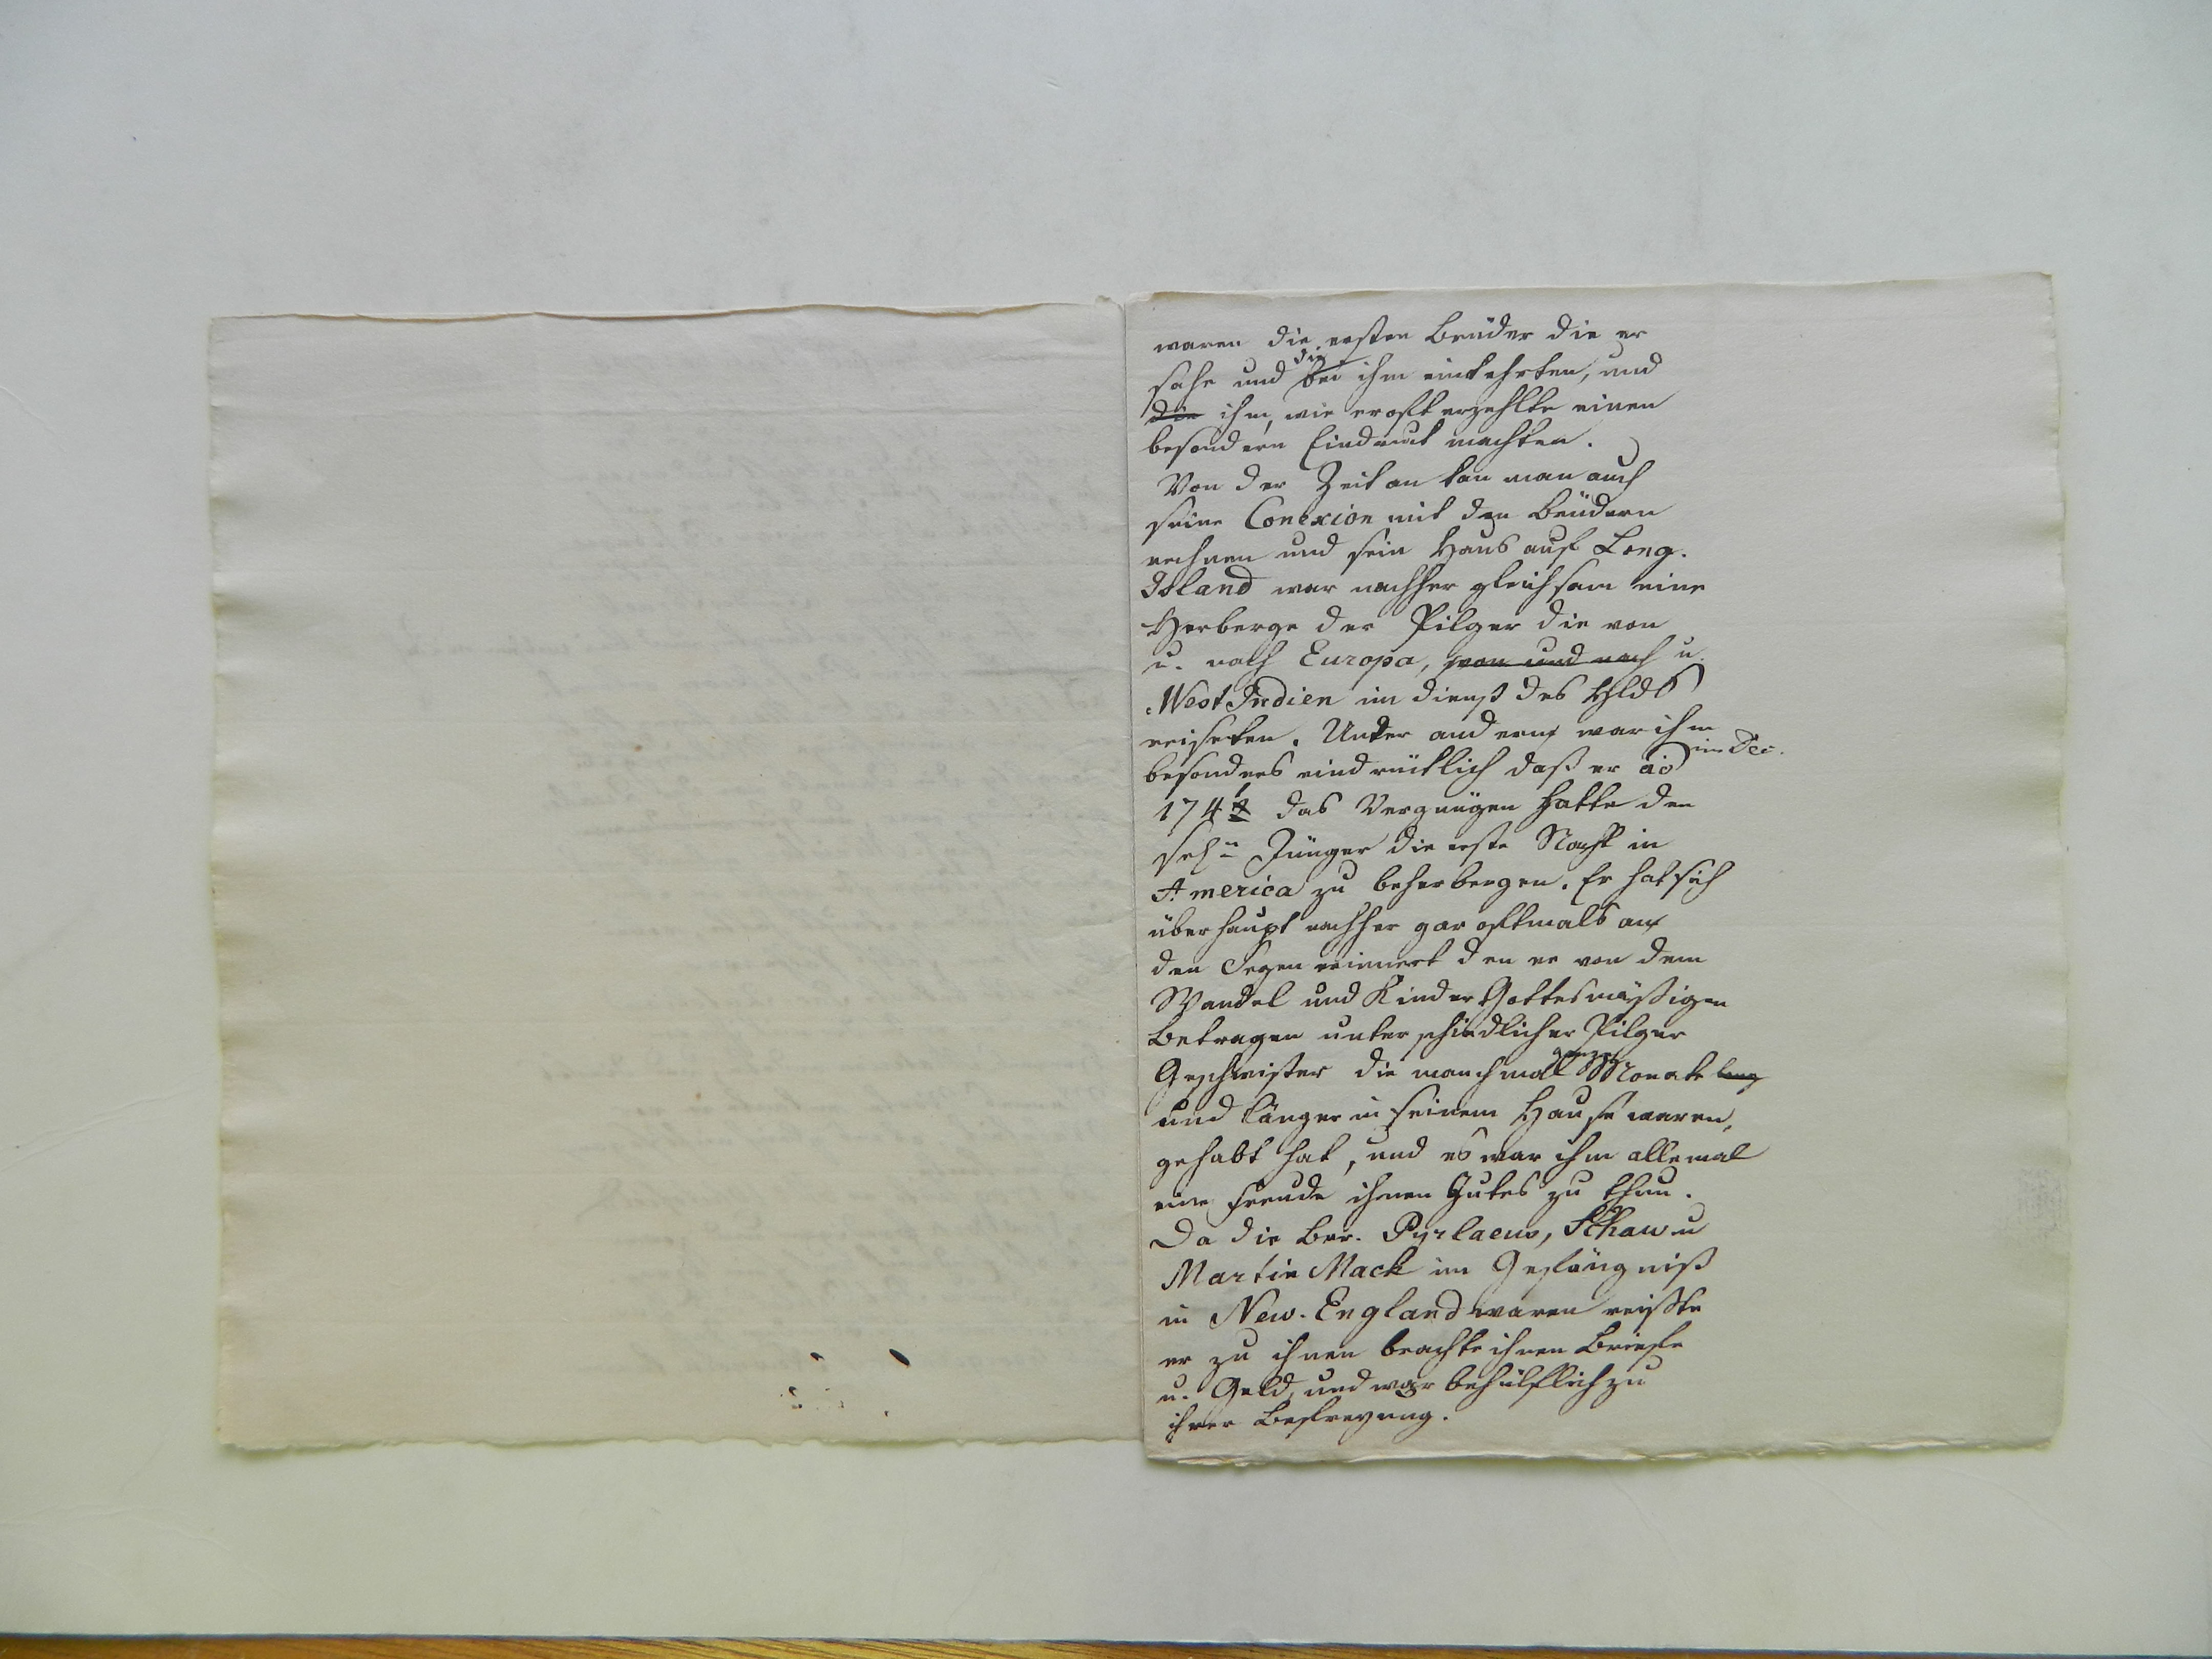 waren die ersten Brüder die er
sahe und die bei ihm einkehrten, und
die ihm, wie er oft erzehlte einen
besondern Eindruk machten.
Von der Zeit an kan man auch
seine Conexion mit den Brüdern
rechnen und sein Haus auf Long-
Island war nachher gleichsam eine
Herberge der Pilger die von
u. nach Europa, von und nach u.
West Indien im dienst des Hlds
reiseten. Unter andern war ihm
besonders eindrüklich daß er ao im Dec.
1741 das Vergnügen hatte den
sel. Jünger die erste Nacht in
America zu beherbergen. Er hat sich
überhaupt nachher gar oftmals an
den Segen erinnert den er von dem
Wandel und Kinder Gottesmäßigen
Betragen unterschiedlicher Pilger
Geschwister die manchmal ganze Monate lang
und länger in seinem Hause waren,
gehabt hat, und es war ihm allemal
eine Freude ihnen Gutes zu thun.
Da die Brr. Pyrlaeus, Schaw u
Martin Mack im Gefängniß
in New-England waren reißte
er zu ihnen brachte ihnen Briefe
u. Geld, und war behülflich zu
ihrer Befreyung.